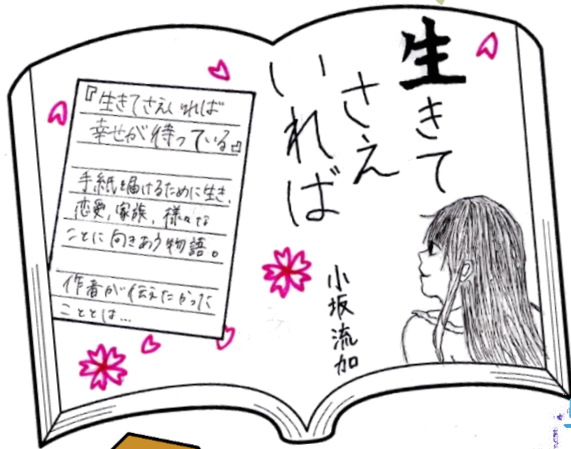 生きて
さえ
いれば
小坂流加
『生きてさえいれば
幸せが待っている』
手紙を届けるために生き、
恋愛、家族、様々な
ことに向きあう物語。
作者が伝えたかった
こととは…